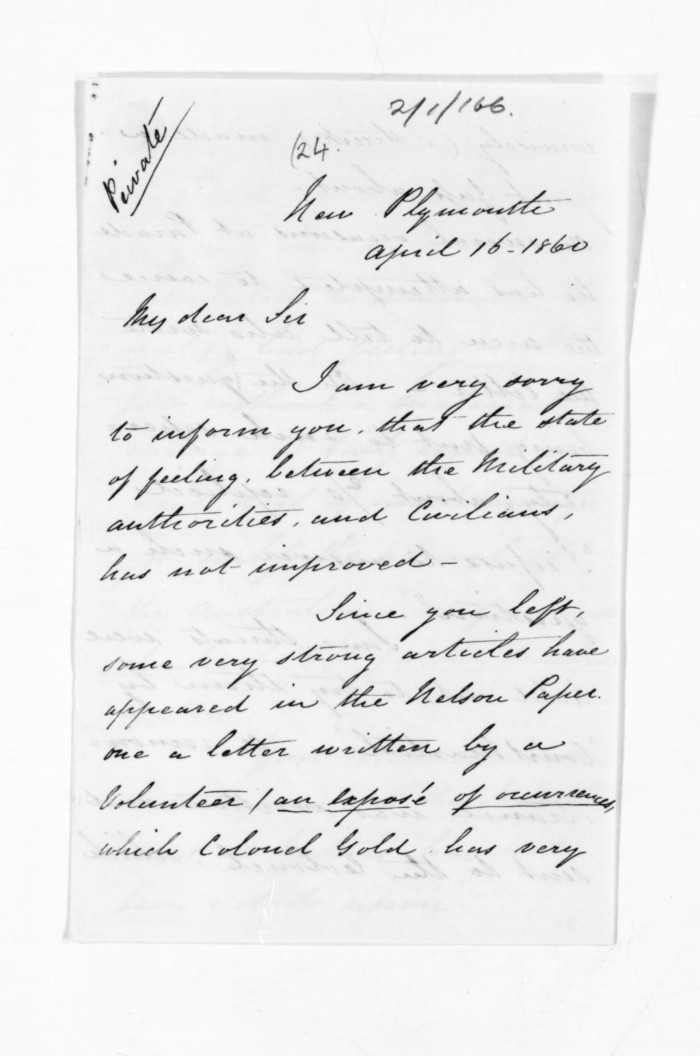 Private
2/1/166.
(24.
New Plymouth
April 16 - 1860
My dear Sir
I am very sorry
to inform you, that the state
of feeling, between the Military
authorities, and Civilians,
has not improved -
Since you left,
some very strong articles have
appeared in the Nelson Paper.
one a letter written by a
Volunteer / an exposé of occurrences,
which Colonel Gold has very